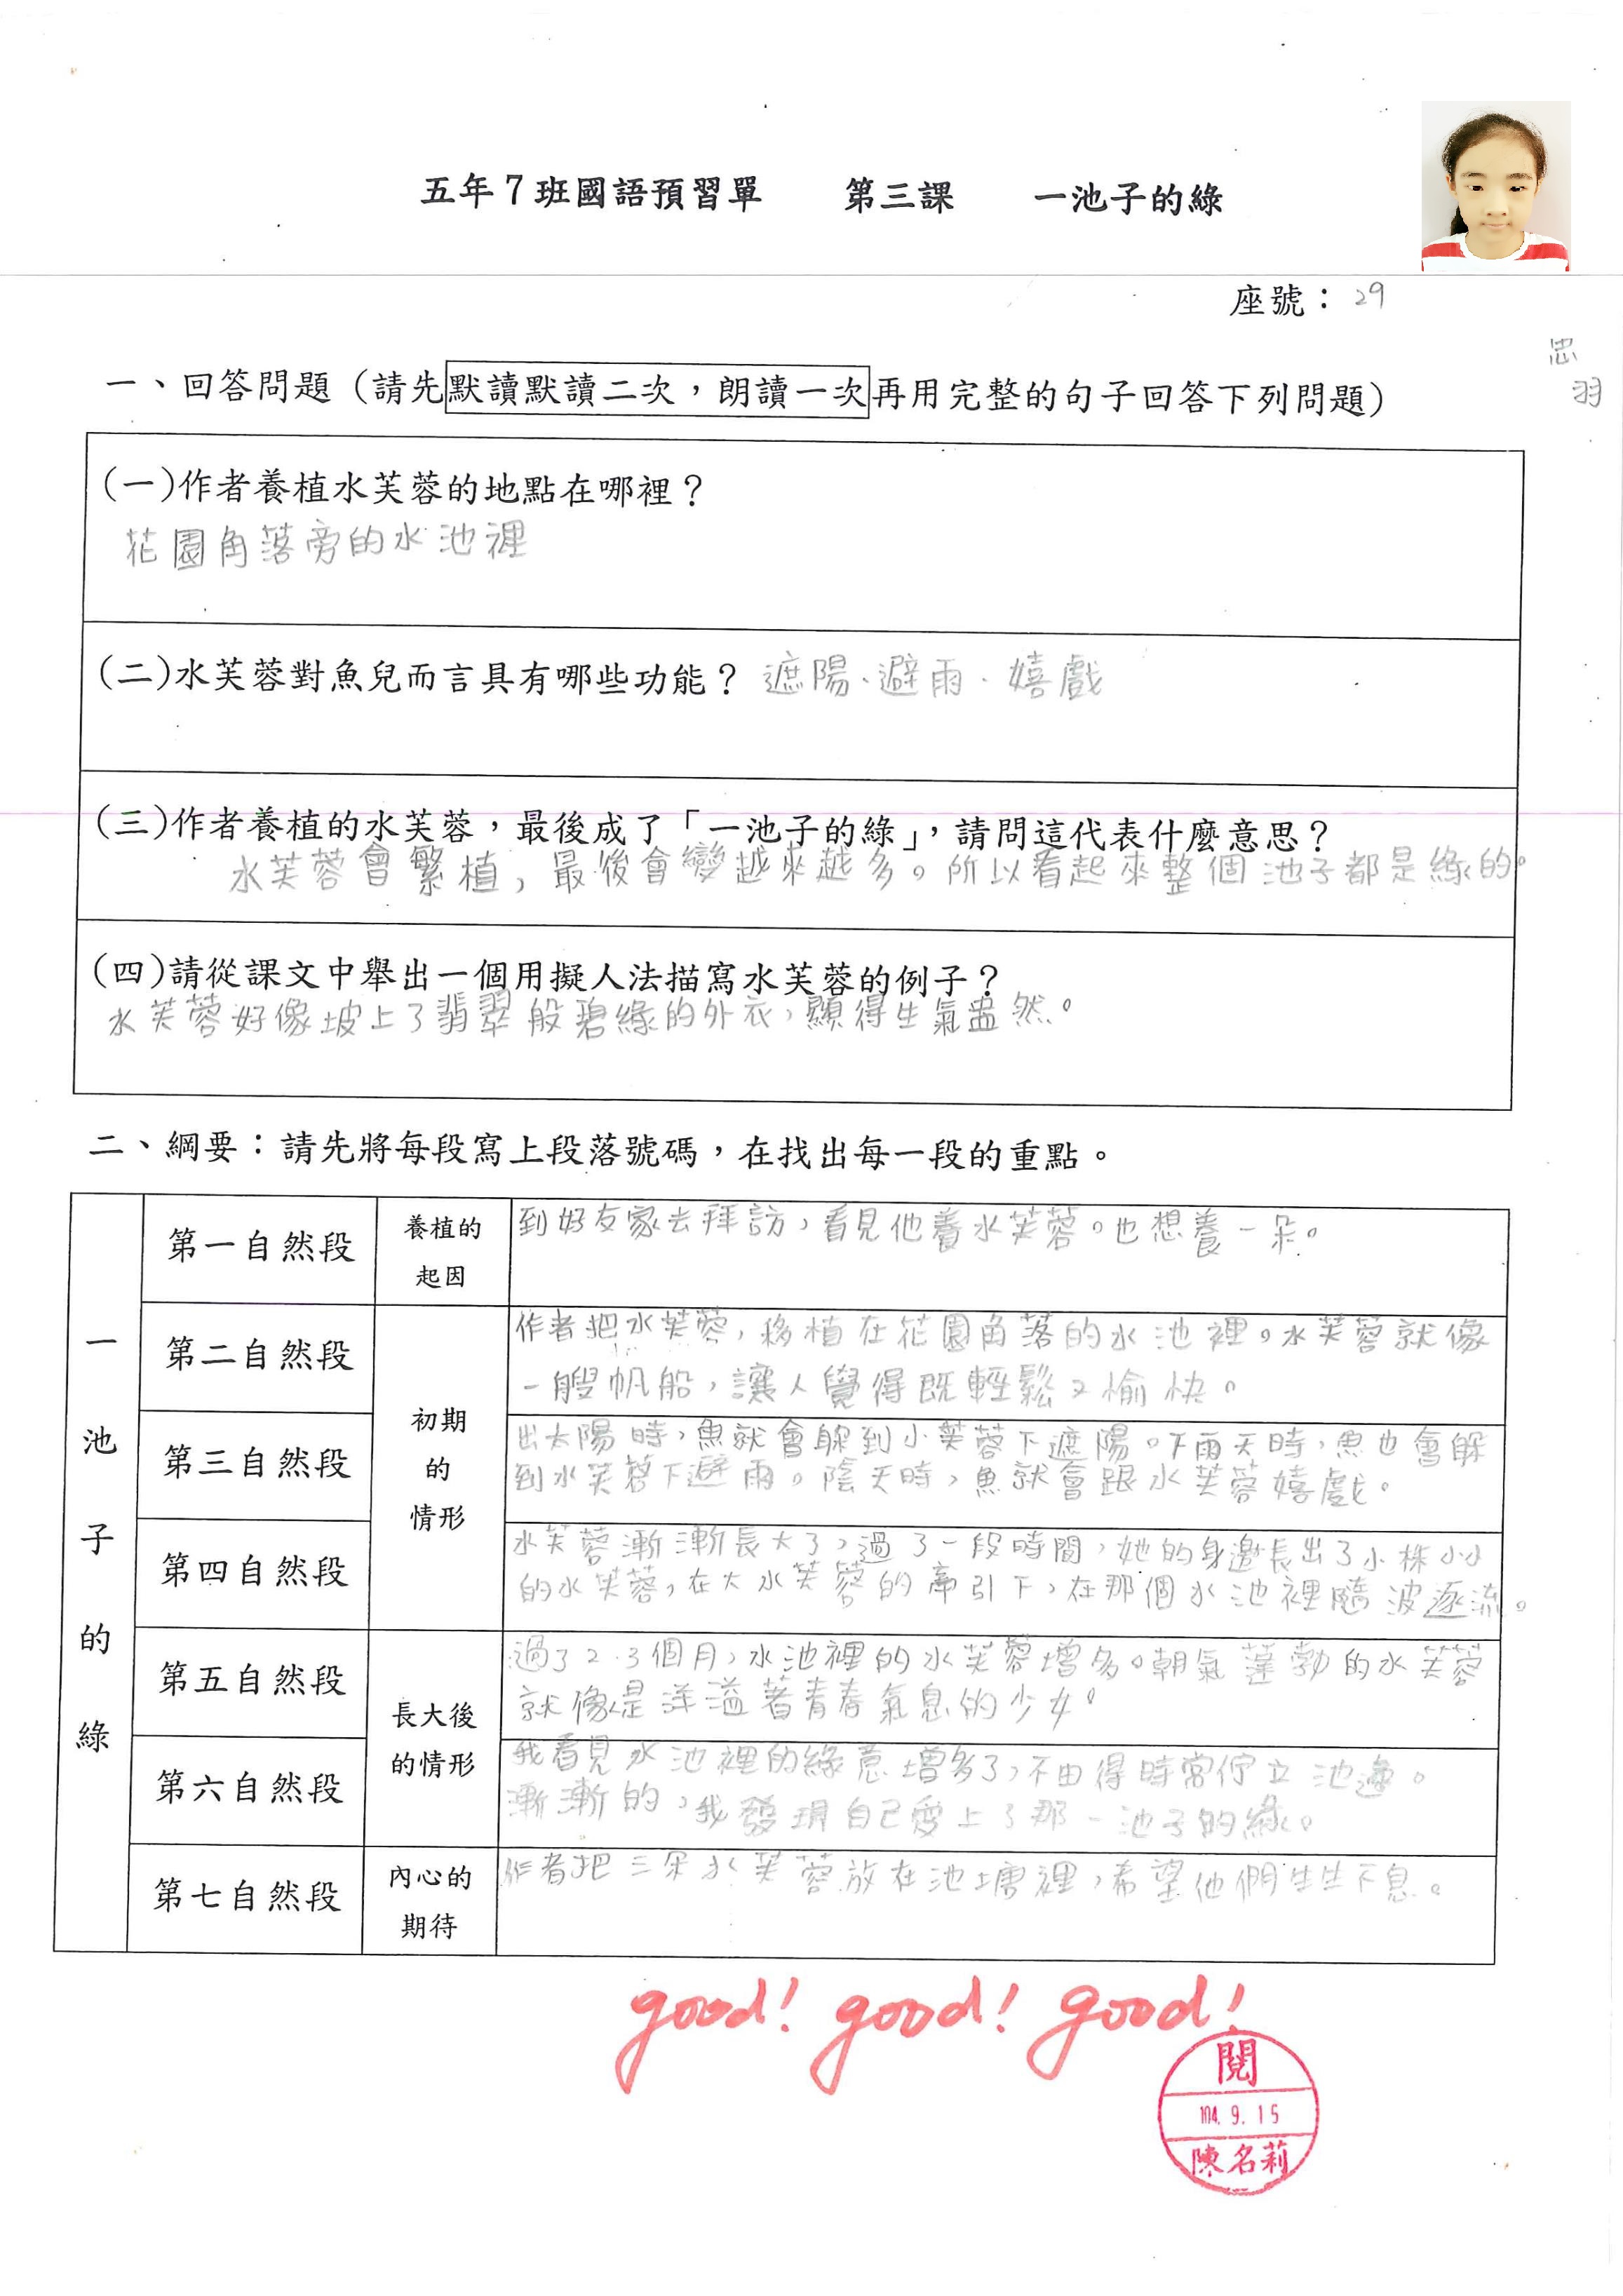 五年7班國語預習單　第三課　一池子的綠
座號：29
忠
羽
一、回答問題（請先默讀默讀二次，朗讀一次再用完整的句子回答下列問題）
(一)作者養植水芙蓉的地點在哪裡？
花園角落旁的水池裡
(二)水芙蓉對魚兒而言具有哪些功能？遮陽、避雨、嬉戲
(三)作者養植的水芙蓉，最後成了「一池子的綠」，請問這代表什麼意思？
水芙蓉會繁植，最後會變越來越多。所以看起來整個池子都是綠的。
(四)請從課文中舉出一個用擬人法描寫水芙蓉的例子？
水芙蓉好像坡上了翡翠般碧綠的外衣，顯得生氣盎然。
二、綱要：請先將每段寫上段落號碼，在找出每一段的重點。
一池子的綠
第一自然段
養植的
起因
到好友家去拜訪，看見他養水芙蓉。也想養一朵。
第二自然段
初期
的
情形
作者把水芙蓉，移植在花園角落的水池裡。水芙蓉就像
一艘帆船，讓人覺得既輕鬆又愉快。
第三自然段
出太陽時，魚就會躲到小芙蓉下遮陽。下雨天時，魚也會躲
到水芙蓉下避雨。陰天時，魚就會跟水芙蓉嬉戲。
第四自然段
水芙蓉漸漸長大了，過了一段時間，她的身邊長出了小株小小
的水芙蓉，在大水芙蓉的牽引下，在那個水池裡隨波逐流。
第五自然段
長大後
的情形
過了2.3個月，水池裡的水芙蓉增多。朝氣蓬勃的水芙蓉
就像是洋溢著青春氣息的少女。
第六自然段
我看見水池裡的綠意增多了，不由得時常佇立池邊。
漸漸的，我發現自己愛上了那一池子的綠。
第七自然段
內心的
期待
作者把三朵水芙蓉放在池塘裡，希望他們生生不息。
good! good! good!
閱
104.9.15
陳名莉